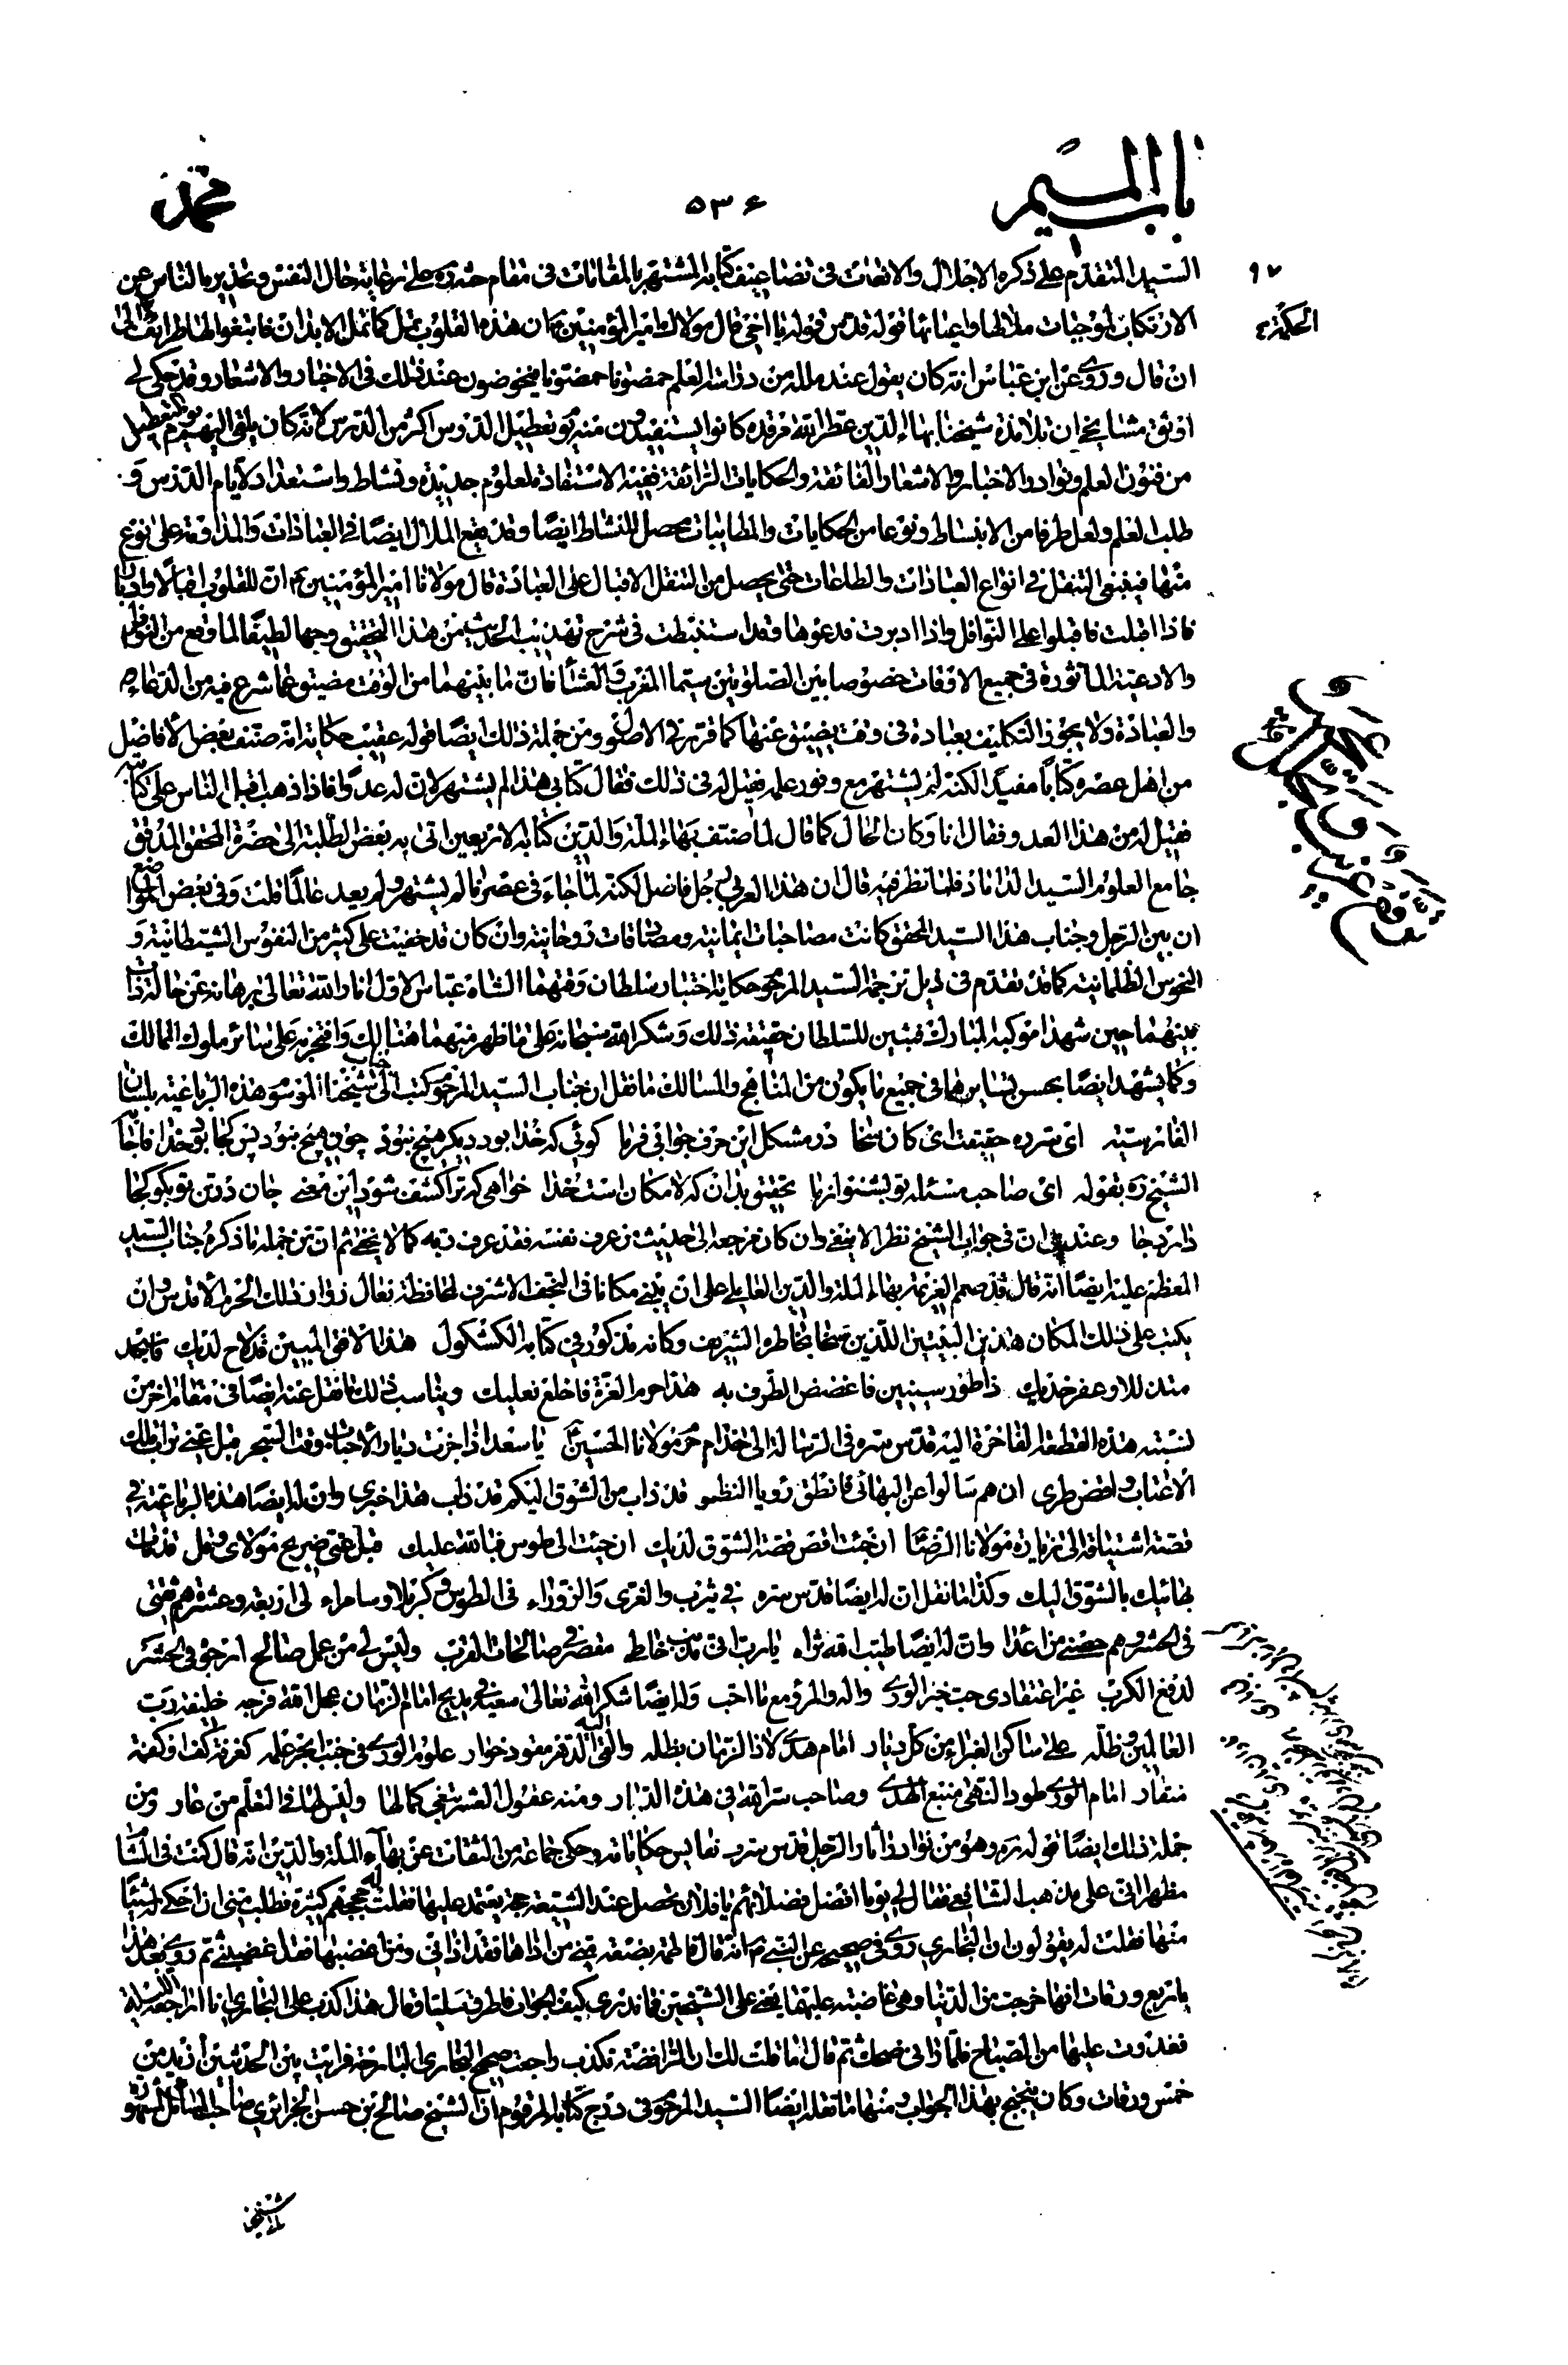 باب الميم
٥٣۶
محمد
السيد المتقدم على ذكره الاجلال والانعات فى تضاعيف كتابه المشتهر بالمقامات فى مقام حثه ره على رعاية حال النفس وتحذيره الناس عن
الارتكاب لموجبات ملالها واعيائها قوله قدس فوله يا اخى قال مولاك امير المؤمنين ع ان هذه القلوب تمل كما تمل الابدان فابتغوا لها طرائف الحكمة الى
ان قال وروى عن ابن عباس انه كان يقول عند ملله من دراسة العلم حمضونا حمضونا فيخوضون عند ذلك فى الاخبار والاشعار وقد حكى لى
اوثق مشايخى ان تلامذة شيخنا بهاء الدين عطر الله مرقده كانوا يستفيدون منه يوم تعطيل الدروس اكثر من الدرس لانه كان يلقى اليهم يوم التعطيل
من فنون العلم ونوادر الاخبار والاشعار الفائقة والحكايات الرائقة ففيه الاستفادة لعلوم جديدة ونشاط واستعداد لايام الدرس و
طلب العلم ولعل طرفا من الانبساط ونوعا من الحكايات والمطايبات محصل للنشاط ايضا وقد يقع الملال ايضا فى العبادات والمداومة على نوع
منها فينبغى التنقل فى انواع العبادات والطاعات حتى يحصل من التنقل الاقبال على العبادة قال مولانا امير المؤمنين ع ان للقلوب اقبالا وادبارا
فاذا اقبلت فاقبلوا على النوافل واذا ادبرت فدعوها وقد استنبطت فى شرح تهذيب الحديث من هذا التحقيق وجها لطيفا لما وقع من النوافل
والادعية الماثورة فى جميع الاوقات خصوصا بين الصلوتين سيما المغرب والعشاء فان ما بينهما من الوقت مضيق عما شرع فيه من الدعاء
والعبادة ولا يجوز التكليف بعبادة فى وقت يضيق عنها كما قرر فى الاصول ومن جملة ذلك ايضا قوله عقيب حكاية انه صنف بعض الافاضل
من اهل عصره كتابا مفيدا لكنه لم يشتهر مع وفور علمه فقيل له فى ذلك فقال كتابى هذا لم يشتهر لان له عدوا فاذا ذهب اقبل الناس على كتابى
فقيل له من هذا العدو فقال انا وكان الحال كما قال لما صنف بهاء الملة والدين كتابه الاربعين اتى به بعض الطلبة الى حضرة المحقق المدقق
جامع العلوم السيد الداماد فلما نظر فيه قال ان هذا العربى رجل فاضل لكنه لما جاء فى عصرنا لم يشتهر ولم يعد عالما قلت وفى بعض المواضع
ان بين الرجل وجناب هذا السيد المحقق كانت مصاحبات ايمانية ومصادقات روحانية وان كان قد خفيت على كثير من النفوس الشيطانية و
النحوس الظلمانية كما قد تقدم فى ذيل ترجمة السيد المرحوم حكاية اختبار سلطان وقتهما الشاه عباس الاول انار الله تعالى برهانه عن حالة ذات
بينهما حين شهدا موكبه المبارك فتبين للسلطان حقيقة ذلك وشكر الله سبحانه على ما ظهر منهما هنالك وافتخر به على سائر ملوك الممالك
وكما يشهد ايضا بحسن تسايرهما فى جميع ما يكون من المناهج والمسالك ما نقل ان جناب السيد المرحوم كتب الى جناب شيخنا المومو هذه الرباعية بلسان
الفارسية اى سرده حقيقت اى كان سخا در مشكل اين حرف جوابى فرما گوئى كه خدا بود ديگر هيچ نبود چون هيچ نبود پس كجا بود خدا فاجابه
الشيخ ره بقوله اى صاحب مسئله تو بشنو از ما تحقيق بدان كه لامكان است خدا خواهى كه ترا كشف شود اين معنى جان در تن تو بگو كجا
دارد جا وعندى ان فى جواب الشيخ نظر لا ينبغى وان كان مرجعه الى حديث من عرف نفسه فقد عرف ربه كما لا يخفى ثم ان من جملة ما ذكره جناب السيد
المعظم عليه ايضا انه قال قد صمم العزيمة بهاء الملة والدين العاملى على ان يبنى مكانا فى النجف الاشرف لمحافظة نعال زوار ذلك الحرم الاقدس وان
يكتب على ذلك المكان هذين البيتين اللذين سنحا بخاطره الشريف وكانه مذكور فى كتابه الكشكول هذا الافق المبين قد لاح لديك فاسجد
متذللا وعفر خديك ذا طور سينين فاغضض الطرف به هذا حرم العزة فاخلع نعليك ويناسب ذلك ما نقل عنه ايضا فى مقام اخر من
نسبته هذه القطعة الفاخرة اليه قدس سره فى الرسالة الى خدام حرم مولانا الحسين ع يا سعد اذا جزت ديار الاحباب وقت السحر قبل عنى تراب تلك
الاعتاب واقض وطرى ان هم سالوا عن البهائى فانطق رويا النظر قد ذاب من الشوق اليكم قد ذاب هذا خبرى وان له ايضا هذه الرباعية فى
قصة اشتياقه الى زيارة مولانا الرضا ان جئت اقص قصة الشوق لديك ان جئت الى طوس فبالله عليك قبل عنى ضريح مولاى وقل قد مات
بهائيك بالشوق اليك وكذا ما نقل ان له ايضا قدس سره فى يثرب والغرى والزوراء فى الطوس وكربلا وسامراء لى اربعة وعشرهم ثقتى
فى الحشر وهم حصنى من اعدا وان له ايضا طيب الله ثراه يا رب انى مذنب خاطى مقصر فى صالحات القرب وليس لى من عمل صالح ارجوه فى الحشر
لدفع الكرب غير اعتقادى حب خير الورى واله والمرؤ مع ما احب وله ايضا شكر الله تعالى سعيه فى مديح امام الزمان عجل الله فرجه خليفة رب
العالمين وظله على ساكن الغبراء من كل ديار امام هدى لاذ الزمان بظله والقى اليه الدهر مقود خوار علوم الورى فى جنب ابحر علمه كغرفة كف او كغمة
منقار امام الورى طود النهى منبع الهدى وصاحب سر الله فى هذه الدار ومنه عقول العشر تبغى كمالها وليس لها فى التعلم من عار ومن
جملة ذلك ايضا قوله ره وهو من نوادر اثار الرجل قدس سره نفايس حكاياته وحكى جماعة من الثقات عن بهاء الملة والدين انه قال كنت فى الشام
مظهرا انى على مذهب الشافعى فقال لى يوما افضل فضلائهم يا فلان تحصل عند الشيعة حجة يعتمد عليها فقلت له حججهم كثيرة فطلب منى ان احكى له شيئا
منها فقلت له يقولون ان البخارى روى فى صحيحه عن النبى ص انه قال فاطمة بضعة منى من اذاها فقد اذانى ومن اغضبها فقد اغضبنى ثم روى بعد هذا
باربع ورقات انها خرجت من الدنيا وهى غاضبة عليهما يعنى على الشيخين فما ندرى كيف الجواب فاطرق مليا وقال هذا كذب على البخارى انا اراجعه الليلة
فغدوت عليه من الصباح فلما رانى ضحك ثم قال اما قلت لك ان الرافضة تكذب راجعت صحيح البخارى البارحة فرايت بين الحديثين ازيد من
خمس ورقات وكان يتبجح بهذا الجواب ومنها ما نقله ايضا السيد المرحوم فى درج كتابه المرقوم ان الشيخ صالح بن حسن الجزائرى صاحب المسائل المشهورة